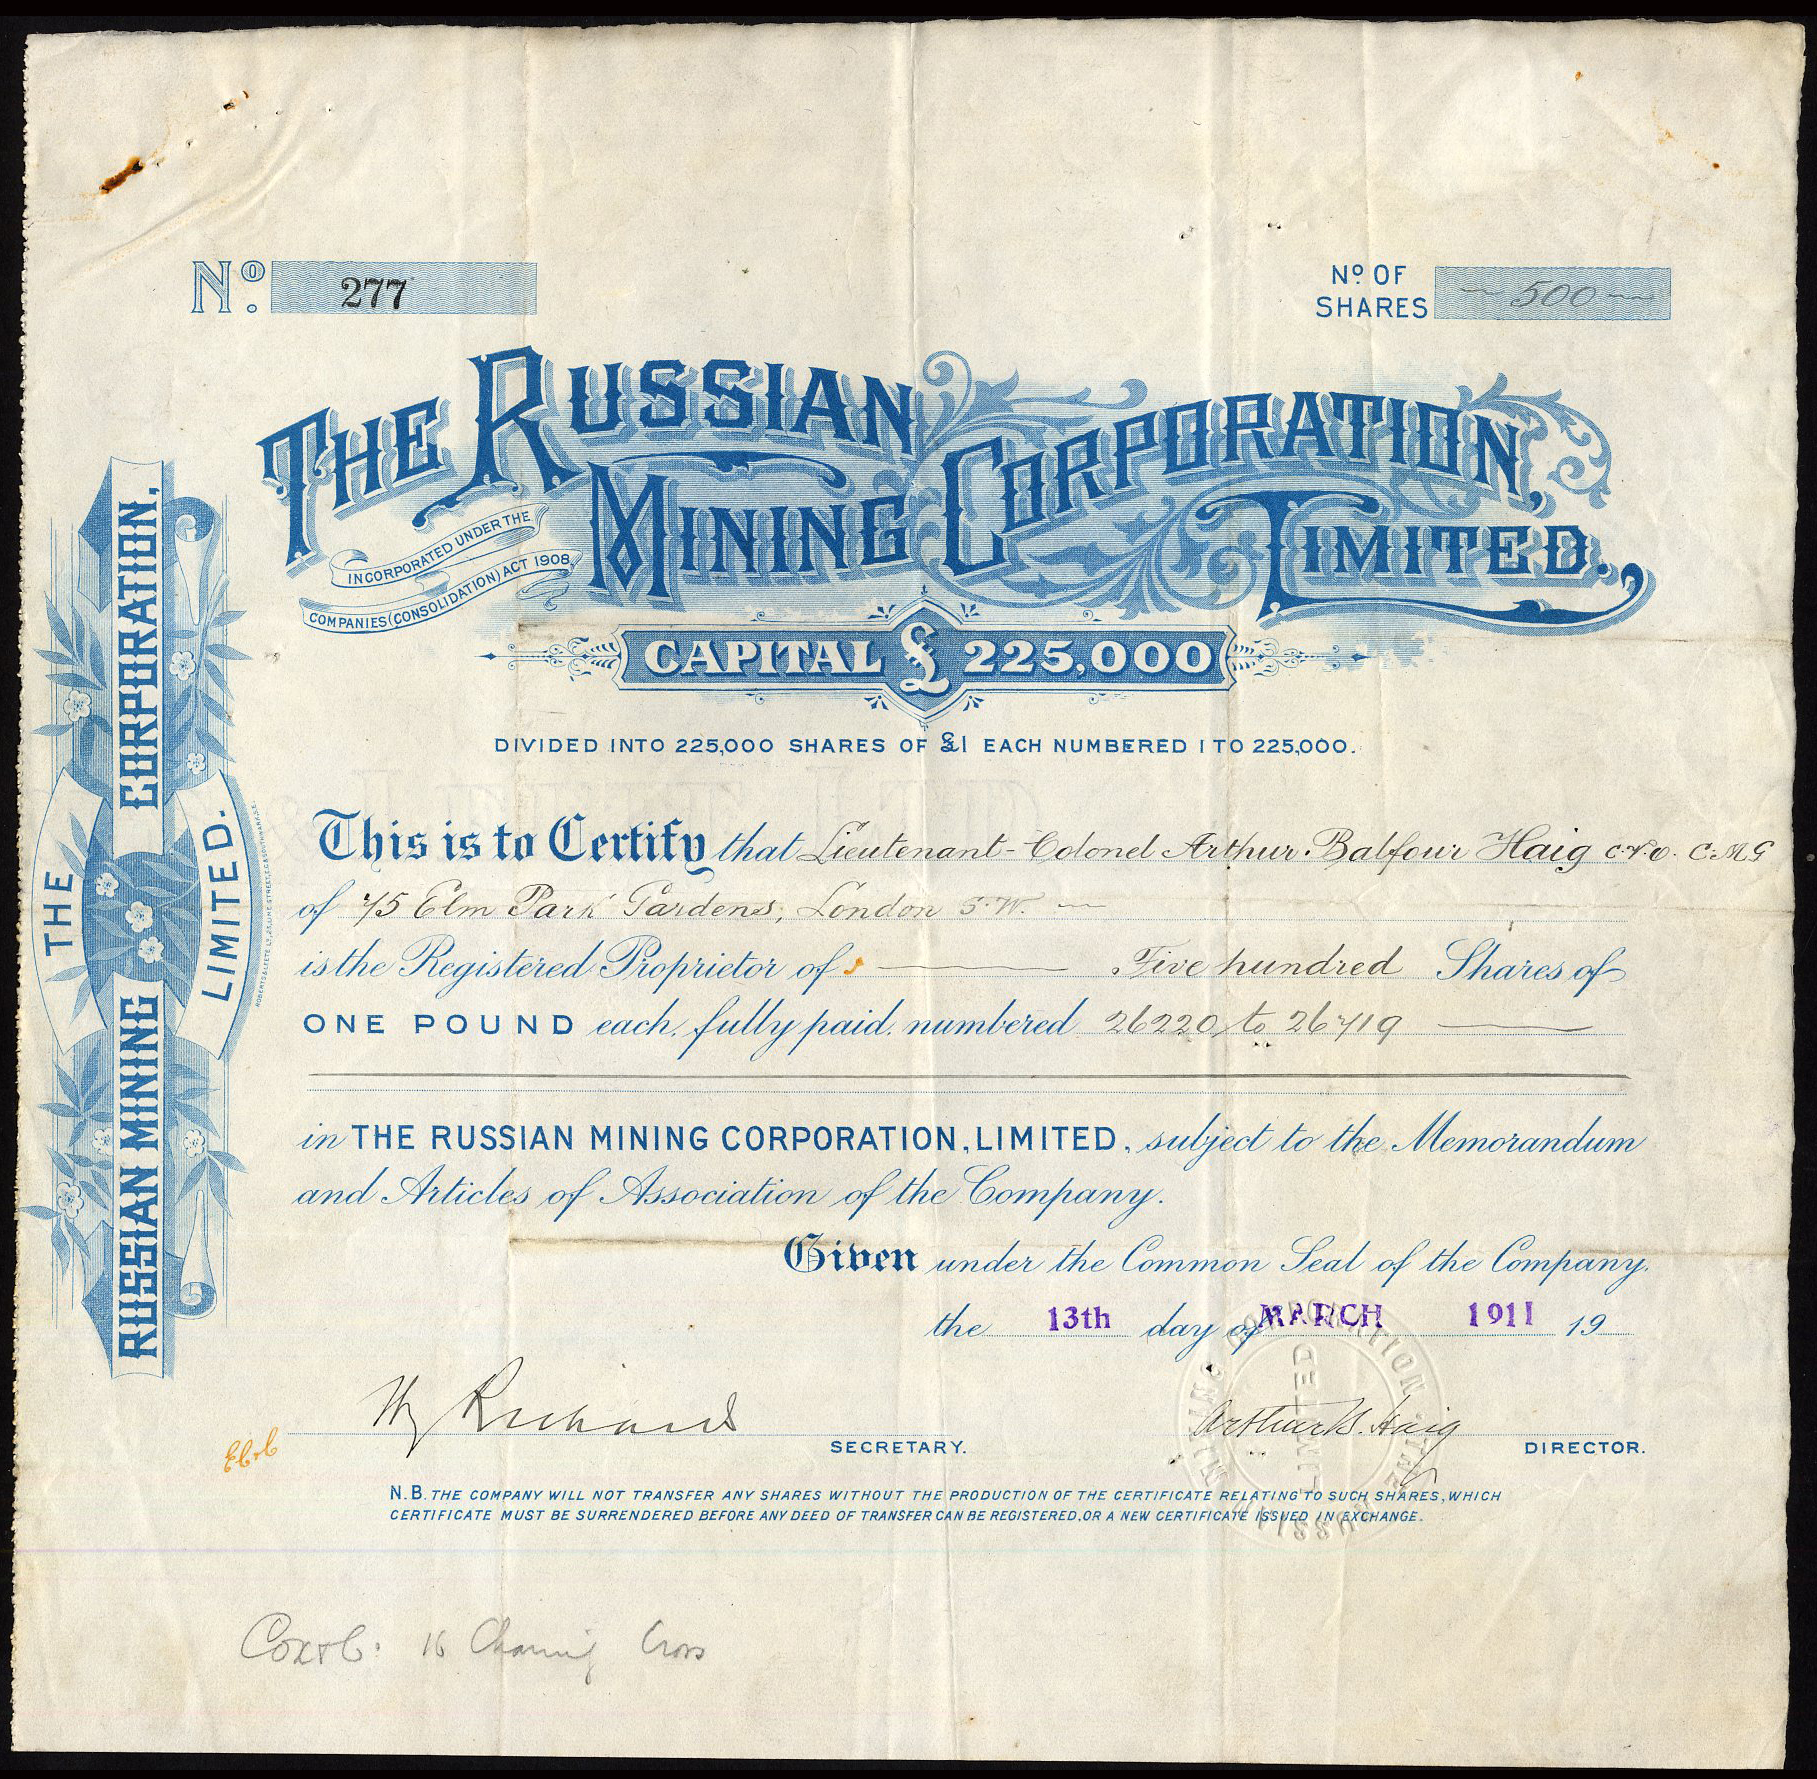 No. 277
No. OF SHARES 500
THE RUSSIAN MINING CORPORATION, LIMITED.,
INCORPORATED UNDER THE
COMPANIES (CONSOLIDATION) ACT 1908.
CAPITAL £ 225,000
DIVIDED INTO 225,000 SHARES OF £1 EACH NUMBERED 1 TO 225,000.
This is to Certify that Lieutenant-Colonel Arthur Balfour Haig C.V.O. C.M.G
of 75 Elm Park Gardens, London S.W.
is the Registered Proprietor of Five hundred Shares of
ONE POUND each, fully paid, numbered 26220 to 26719
in THE RUSSIAN MINING CORPORATION, LIMITED, subject to the Memorandum
and Articles of Association of the Company.
Given under the Common Seal of the Company,
the 13th day of MARCH 1911 19
Arthur B. Haig
SECRETARY.
DIRECTOR.
N.B. THE COMPANY WILL NOT TRANSFER ANY SHARES WITHOUT THE PRODUCTION OF THE CERTIFICATE RELATING TO SUCH SHARES, WHICH
CERTIFICATE MUST BE SURRENDERED BEFORE ANY DEED OF TRANSFER CAN BE REGISTERED, OR A NEW CERTIFICATE ISSUED IN EXCHANGE.
Cox & Co. 16 Charing Cross
THE RUSSIAN MINING CORPORATION, LIMITED.
THE RUSSIAN MINING CORPORATION. LIMITED